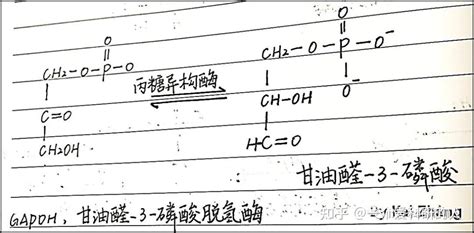 O
CH₂-O-P-O
C=O
CH₂OH
丙糖异构酶
O
CH₂-O-P-O⁻
O⁻
CH-OH
HC=O
甘油醛-3-磷酸
GAPDH, 甘油醛-3-磷酸脱氢酶
知乎